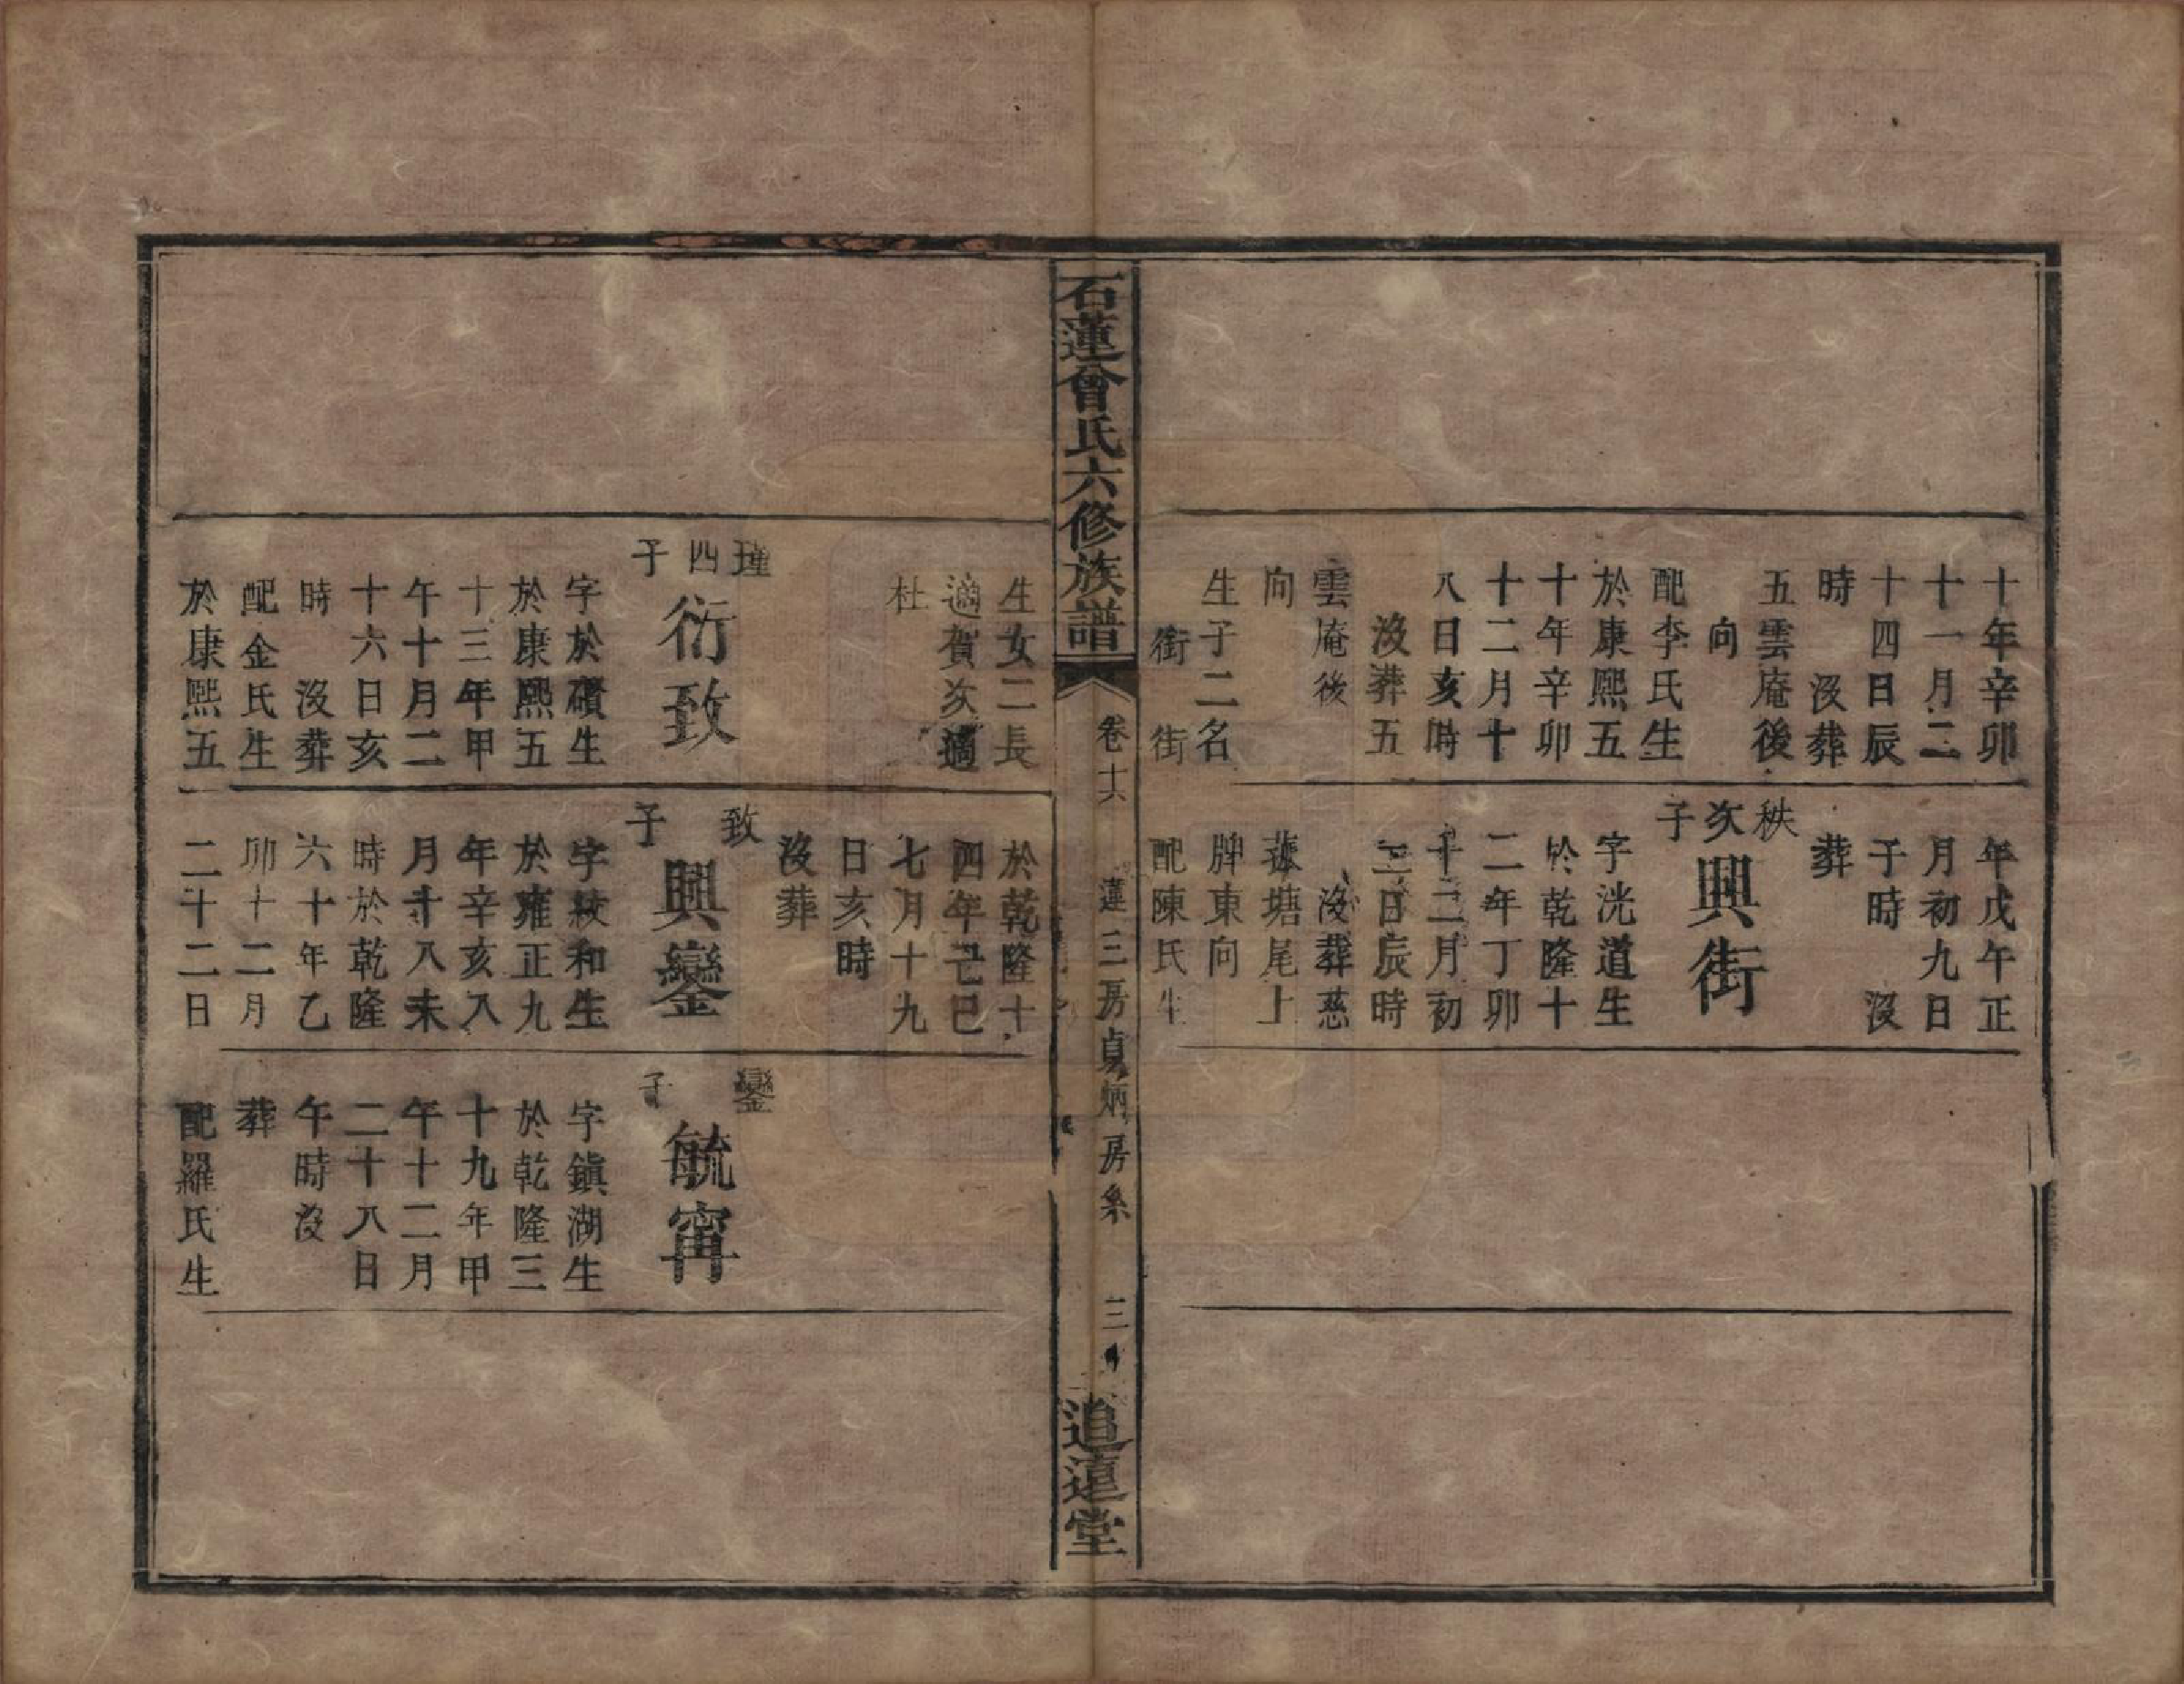 十年辛卯
十一月二
十四日辰
時　沒葬
五雲庵後
向
配李氏生
於康熙五
十年辛卯
十二月十
八日亥時
沒葬五
雲庵後
向
生子二名
銜　街
年戊午正
月初九日
子時　沒
葬
秩次子
興街
字洸道生
於乾隆十
二年丁卯
十二月初
三日辰時
沒葬慈
塘尾上
牌東向
配陳氏生
石蓮曾氏六修族譜
卷十六
蓮三房貞炳房系
三
追遠堂
生女二長
適賀次適
杜
瑾四子
衍致
字於磧生
於康熙五
十三年甲
午十月二
十六日亥
時　沒葬
配金氏生
於康熙五
於乾隆十
四年己巳
七月十九
日亥時
沒葬
致子
興鑾
字紋和生
於雍正九
年辛亥八
月十八未
時於乾隆
六十年乙
卯十二月
二十二日
鑾子
毓甯
字鎮湖生
於乾隆三
十九年甲
午十二月
二十八日
午時沒
葬
配羅氏生